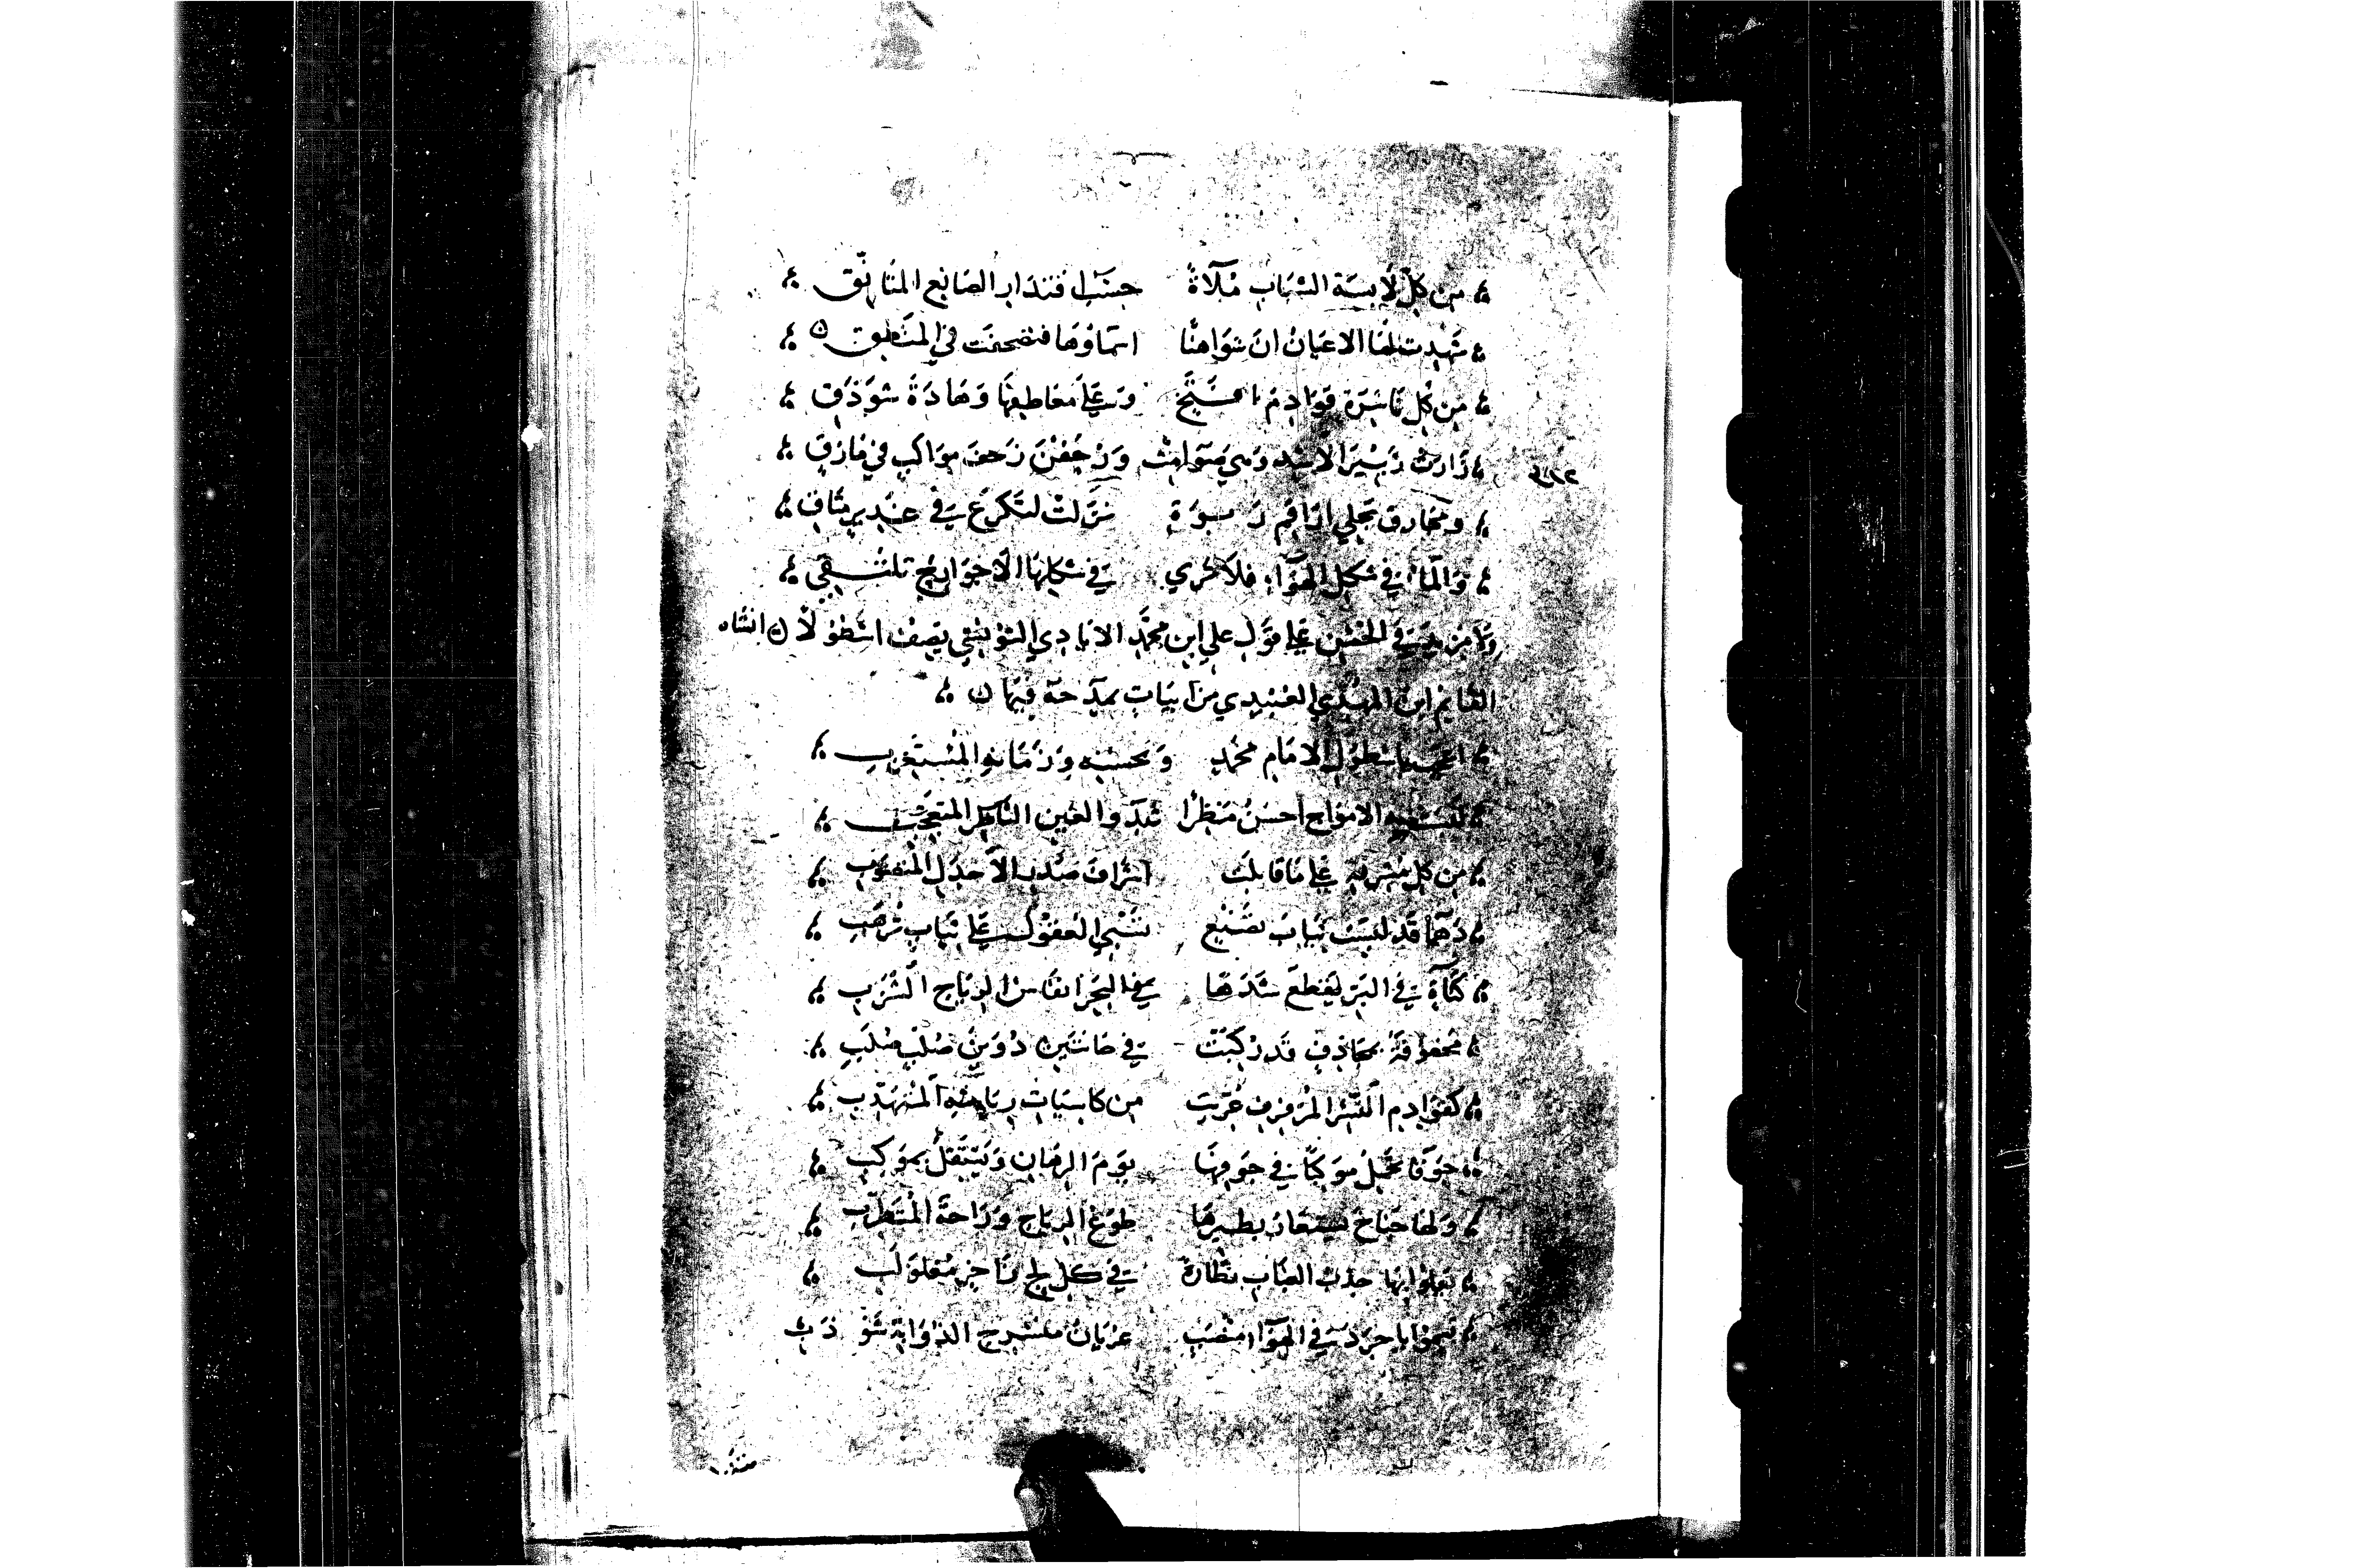 من كل لابسة الشباب ملاءة حسب اقتدار الصانع المتانق
شهدت لها الاعيان ان شواهنا اسماوها فتصحفت في المنطق
من كل ناشرة قوادم افتخ وعلى معاطفها وهادة شوذق
زارت زئير الاسد وهي صوامت وزحفن زحف مواكب في مازق
ومجادف تحكي اراقم ربوة نزلت لتكرع في غدير متاق
والماء في شكل الهواء فلا ترى في شكلها الا جوارح تلتقي
ولا مزيد في الحسن على قول علي ابن محمد الايادي التونسي يصف اسطولا انشاه
القايم ابن المهدي العبيدي من ابيات يمدحه فيها
اعجب باسطول الامام محمد وبحسنه وزمانه المستغرب
لبست به الامواج احسن منظرا تبدو العين الناظر المتعجب
من كل مشرفة على ما قابلت اشراف صدر الاجدل المنصوب
دهما قد لبست ثياب تصنع تسبي العقول على ثياب ترهب
في البر يقطع شدها في البحر انفاس الرياح الشزب
محفوفة بمجاذف قد ركبت في جانبين دوين صلب صلب
كقوادم النسر المرفرف عريت من كاسيات رياشه المتهدب
جوفا تحمل موكبا في جوفها يوم الرهان وتستقل بموكب
ولها جناح يستعار يطيرها طوع الرياح وراحة المتطرب
يعلوا بها حدب العباب مطارة في كل لج زاخر مغلولب
تسموا باجرد في الهواء منصب عريان منسرح الذوابة شوذب